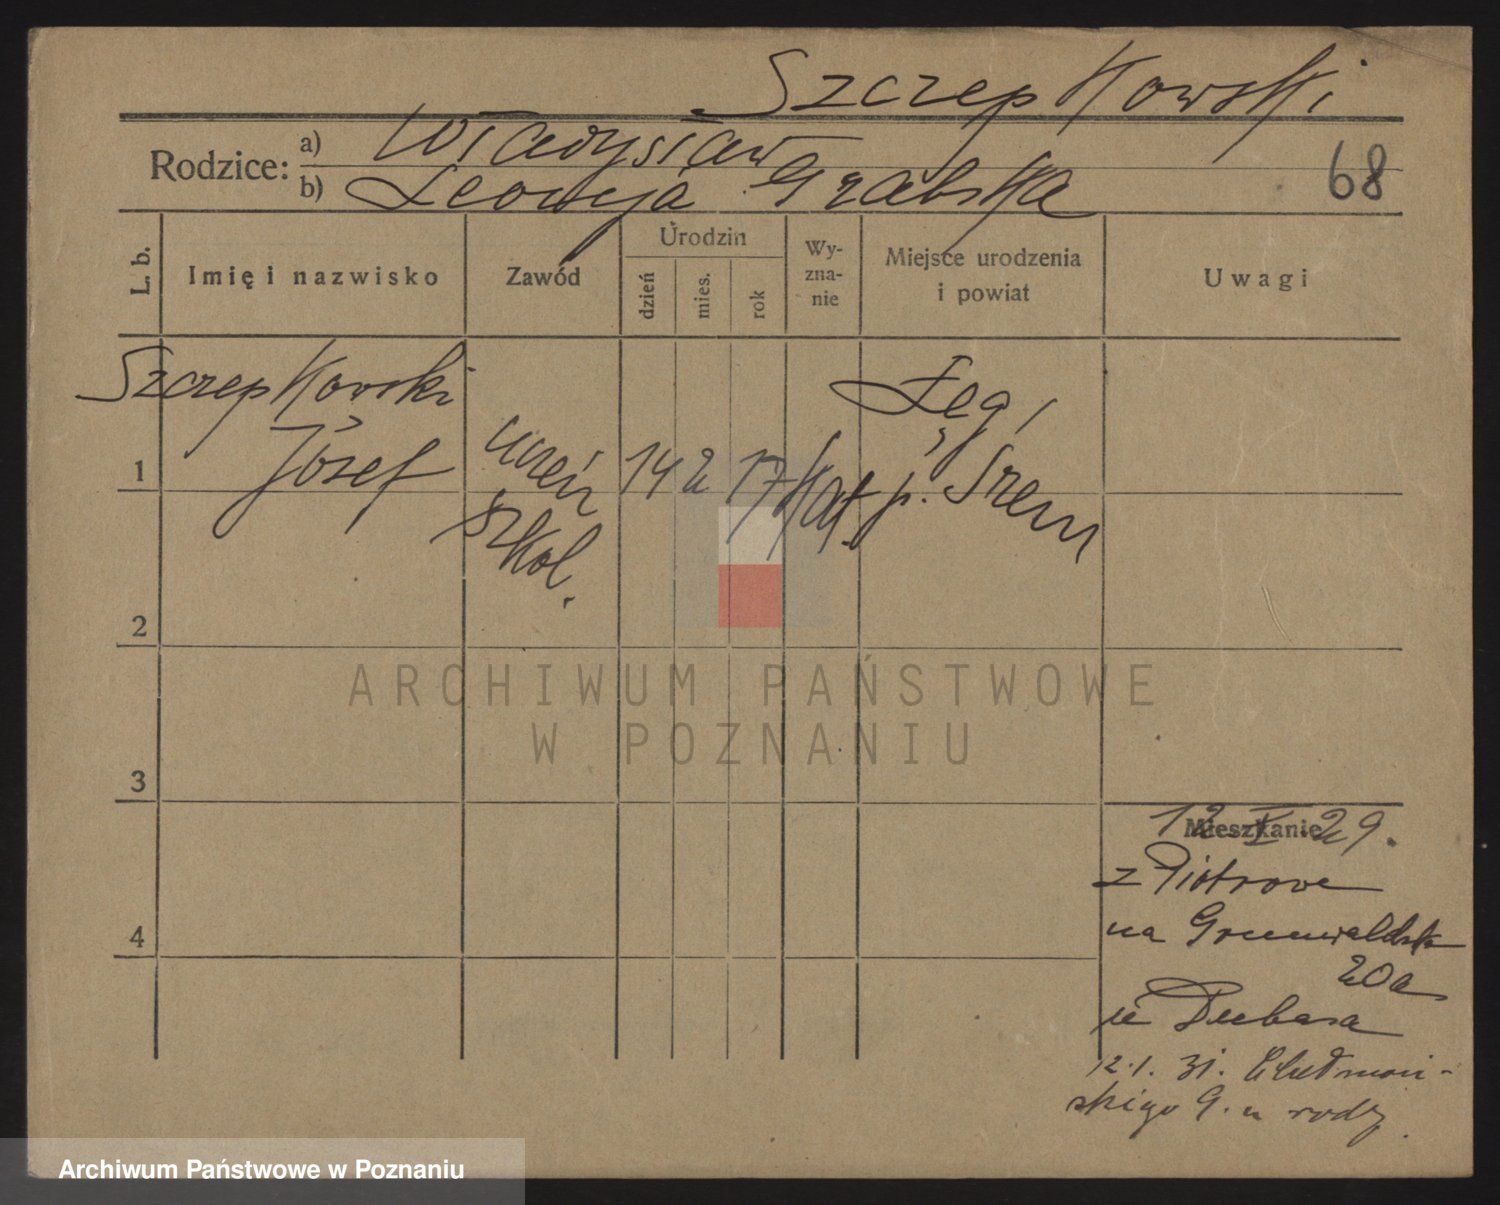 Szczepkowski
Rodzice:
a) Władysław
b) Leonja Grabska
68
L. b.
Imię i nazwisko
Zawód
Urodzin
dzień
mies.
rok
Wy-
zna-
nie
Miejsce urodzenia
i powiat
Uwagi
Szczepkowski
Józef
1
uczeń
szkol.
14 2 17
kat.
Łęg,
p. Śrem
2
3
4
Mieszkanie
12. V 29.
z Piotrowa
na Grunwaldzka
20a
u Dubasa
12.1.31.
skiego 9. u rodz.
ARCHIWUM PAŃSTWOWE
W POZNANIU
Archiwum Państwowe w Poznaniu